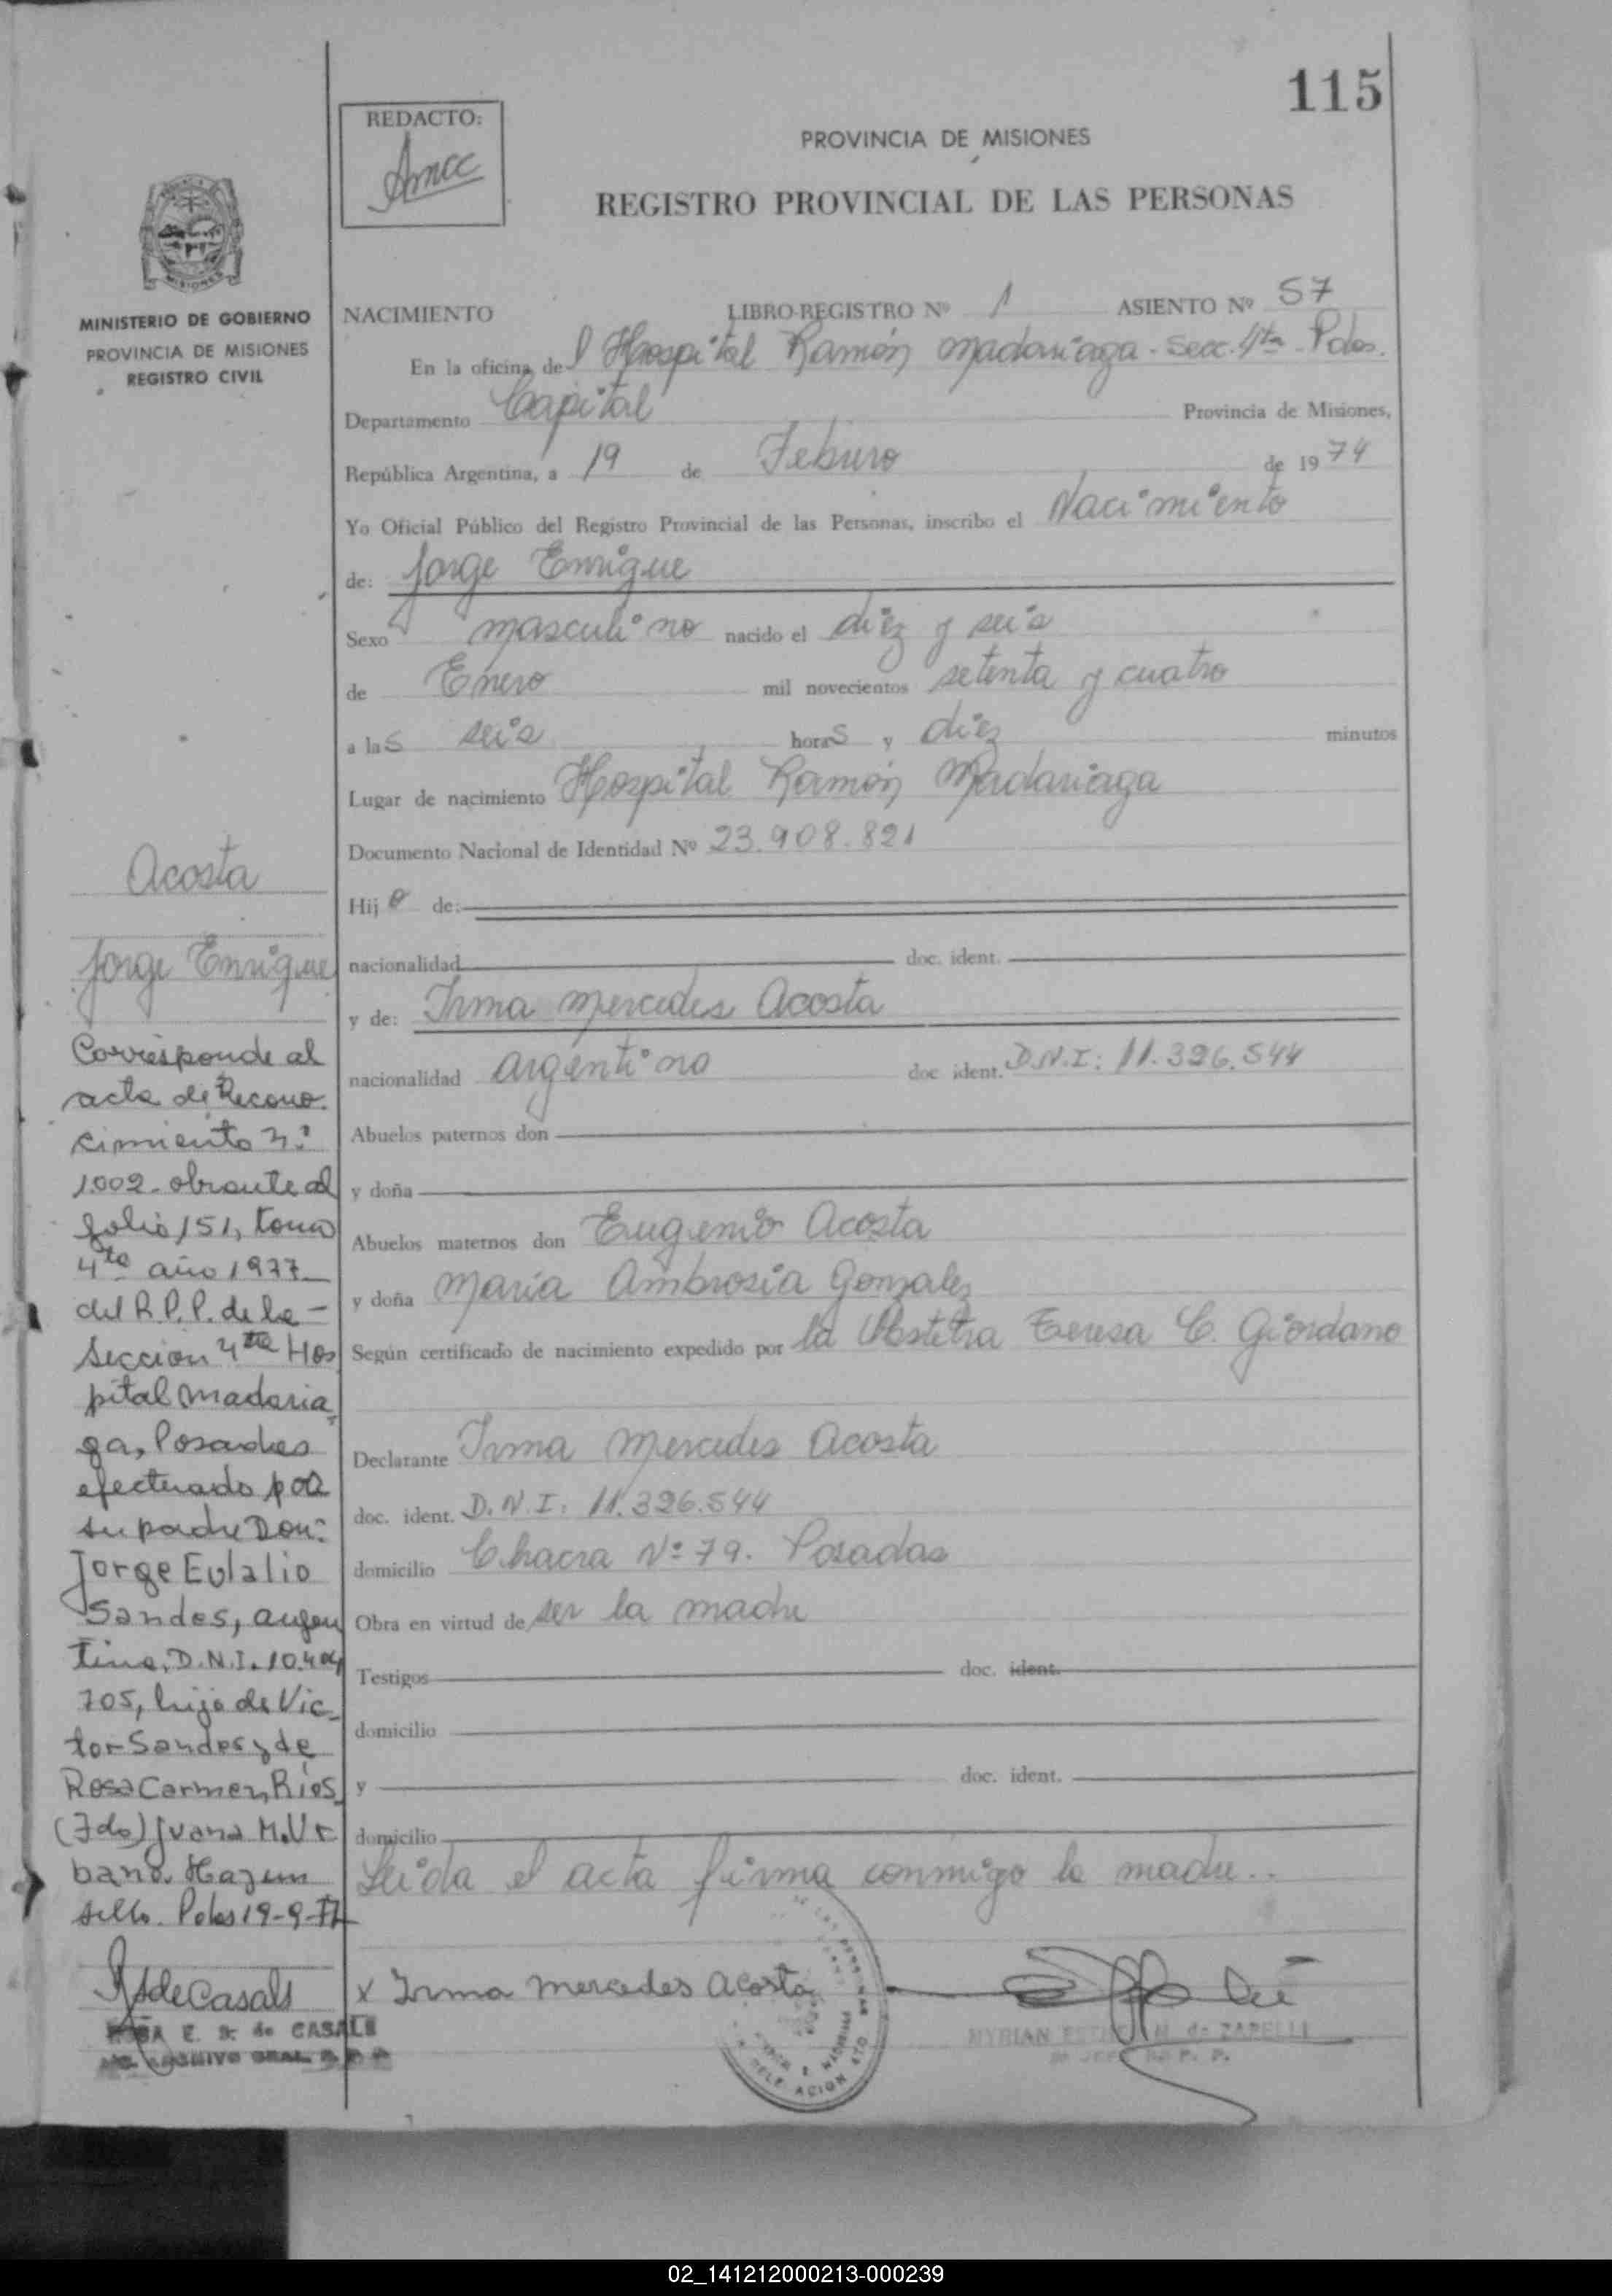 115
REDACTO:
PROVINCIA DE MISIONES
REGISTRO PROVINCIAL DE LAS PERSONAS
MISIONES
MINISTERIO DE GOBIERNO
PROVINCIA DE MISIONES
REGISTRO CIVIL
NACIMIENTO LIBRO-REGISTRO Nº 1 ASIENTO Nº 57
En la oficina del Hospital Ramón Madariaga - Secc. 4ta - Pdas.
Departamento Capital Provincia de Misiones,
República Argentina, a 19 de Febrero de 1974
Yo Oficial Público del Registro Provincial de las Personas, inscribo el Nacimiento
de: Jorge Enrique
Sexo masculino nacido el diez y seis
de Enero mil novecientos setenta y cuatro
a las seis horas y diez minutos
Lugar de nacimiento Hospital Ramón Madariaga
Documento Nacional de Identidad Nº 23.908.821
Hijo de:
nacionalidad doc. ident.
y de: Irma Mercedes Acosta
nacionalidad argentina doc ident. D.N.I: 11.326.544
Abuelos paternos don
y doña
Abuelos maternos don Eugenio Acosta
y doña Maria Ambrosia Gonzalez
Según certificado de nacimiento expedido por la Obstetra Teresa C. Giordano
Declarante Irma Mercedes Acosta
doc. ident. D.N.I: 11.326.544
domicilio Chacra Nº 79. Posadas
Obra en virtud de ser la madre
Testigos doc. ident.
domicilio
y doc. ident.
domicilio
Leida el acta firma conmigo la madre..
x Irma Mercedes Acosta
Acosta
Jorge Enrique
Corresponde al
acta de Recono-
cimiento nº
1.002 - obrante al
folio 151, tomo
4to año 1977
del R.P.P. de la -
Seccion 4ta Hos
pital Madaria
ga, Posadas
efectuado por
su padre Don:
Jorge Eulalio
Sandes, argen
tino, D.N.I. 10.404
705, hijo de Vic-
tor Sandes y de
Rosa Carmen Rios
(Fdo) Juana M. Ur
bano. Hay un
sello. Pdas 19-9-77
ROSA E. S. de CASALS
ARCHIVO GRAL. R.P.P.
DELEGACION 4TO
MYRIAN ESTHER M. de ZAPELLI
02_141212000213-000239